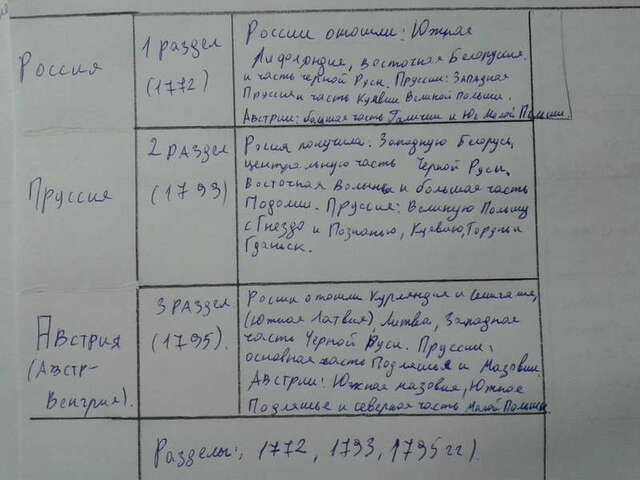 Россия
1 раздел
(1772)
России отошли: Южная
Лифляндия, восточная Белоруссия.
и часть черной Руси. Пруссии: Западная
Пруссия и часть Куявии Великой Польши.
Австрии: большая часть Галиции и Юг Малой Польши.
Пруссия
2 раздел
(1793)
Россия получила: Западную Белорусь,
центральную часть Черной Руси,
Восточная Волынь и большая часть
Подолии. Пруссия: Великую Польшу
с Гнездо и Познанью, Куявию, Торунь и
Гданьск.
Австрия
(Австр-
Венгрия).
3 раздел
(1795).
России отошли Курляндия и
(Южная Латвия), Литва, Западная
часть Черной Руси. Пруссии:
основная часть Подляшья и Мазовии.
Австрии: Южная мазовия, Южное
Подляшье и северная часть Малой Польши.
Разделы:, 1772, 1793, 1795 гг).